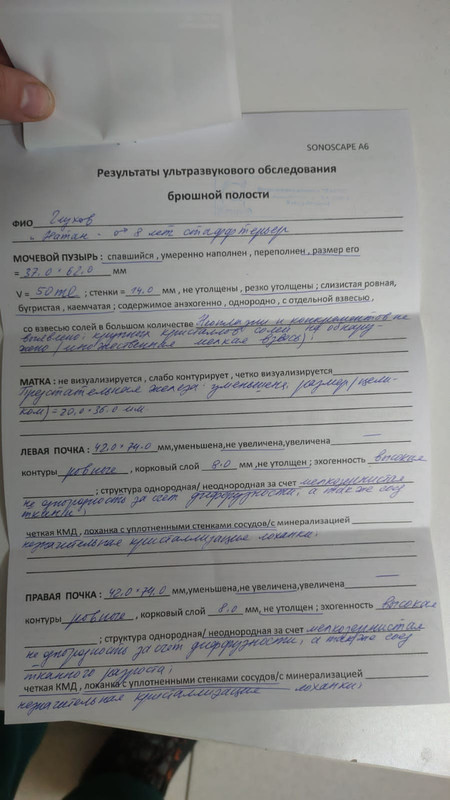 SONOSCAPE A6
Результаты ультразвукового обследования
брюшной полости
ФИО Глухов
Натан - ♂ 8 лет стаффтерьер
МОЧЕВОЙ ПУЗЫРЬ : спавшийся , умеренно наполнен , переполнен , размер его
= 37.0 * 62.0 мм
V = 50 ml ; стенки = 14,0 мм , не утолщены , резко утолщены ; слизистая ровная,
бугристая , каемчатая ; содержимое анэхогенно , однородно , с отдельной взвесью ,
со взвесью солей в большом количестве Неоплазии и конкрементов не
выявлено; крупных кристаллов солей не обнару-
жено / множественная мелкая взвесь) ;
МАТКА : не визуализируется , слабо контурирует , четко визуализируется
Предстательная железа: уменьшена, размер /цели-
ком) = 20.0 * 36.0 мм
ЛЕВАЯ ПОЧКА : 42.0 * 74.0 мм,уменьшена,не увеличена,увеличена —
контуры ровные , корковый слой 8.0 мм ,не утолщен ; эхогенность высокая
; структура однородная/ неоднородная за счет мелкозернистая
не однородность за счет диффузности, а также соед
ткани
четкая КМД , лоханка с уплотненными стенками сосудов/с минерализацией
незначительная кристаллизация лоханки.
ПРАВАЯ ПОЧКА : 42.0 * 74.0 мм,уменьшена,не увеличена,увеличена —
контуры ровные , корковый слой 8.0 мм, не утолщен ; эхогенность высокая
; структура однородная/ неоднородная за счет мелкозернистая
не однородность за счет диффузности, а также соед
тканного разроста;
четкая КМД , лоханка с уплотненными стенками сосудов/с минерализацией
незначительная кристаллизация лоханки;